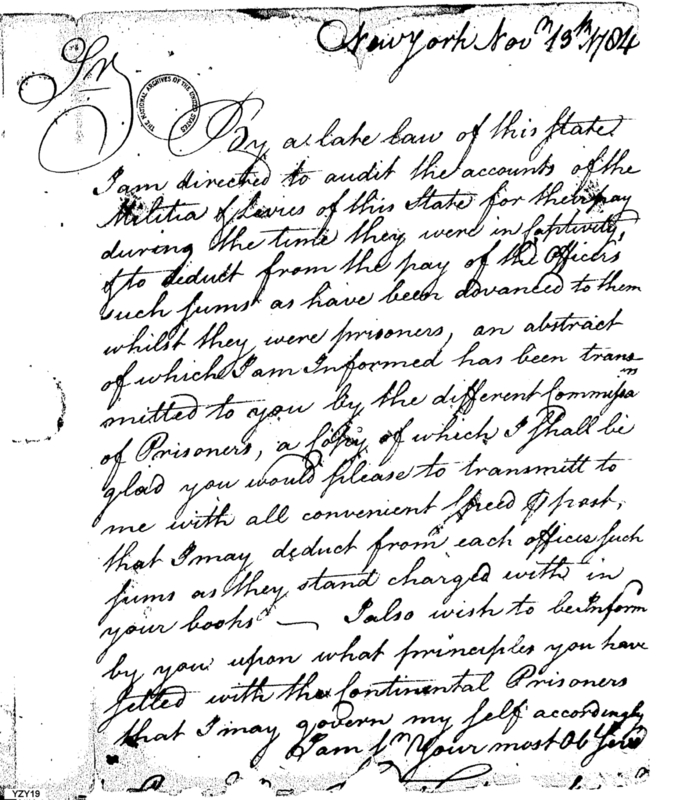 New York Novr 13th 1784
Sir
THE NATIONAL ARCHIVES OF THE UNITED STATES
By a late law of this State
I am directed to audit the accounts of the
Militia & Levies of this State for their pay
during the time they were in Captivity,
& to deduct from the pay of the Officers
such sums as have been advanced to them
whilst they were prisoners, an abstract
of which I am Informed has been trans
mitted to you by the different Commissars
of Prisoners, a Copy of which I shall be
glad you would please to transmitt to
me with all convenient speed post,
that I may deduct from each officer such
sums as they stand charged with in
your books — I also wish to be Inform
by you upon what principles you have
settled with the Continental Prisoners
that I may govern my self accordingly
I am Sr Your most Ob Serv
YZY19